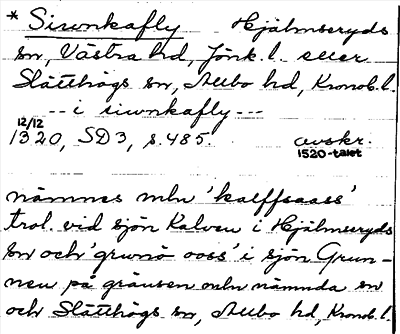 * Siwnkafly Hjälmseryds
sn, Västra hd, Jönk. l. eller
Slätthögs sn, Allbo hd, Kronob. l.
-- i siwnkafly --
12/12
1320, SD 3, s. 485. avskr.
1520-talet
nämnes mln 'kalffsaass'
trol. vid sjön Kalven i Hjälmseryds
sn och 'grwnö ooss' i sjön Grun-
nen på gränsen mln nämnda sn
och Slätthögs sn, Allbo hd, Kronob. l.